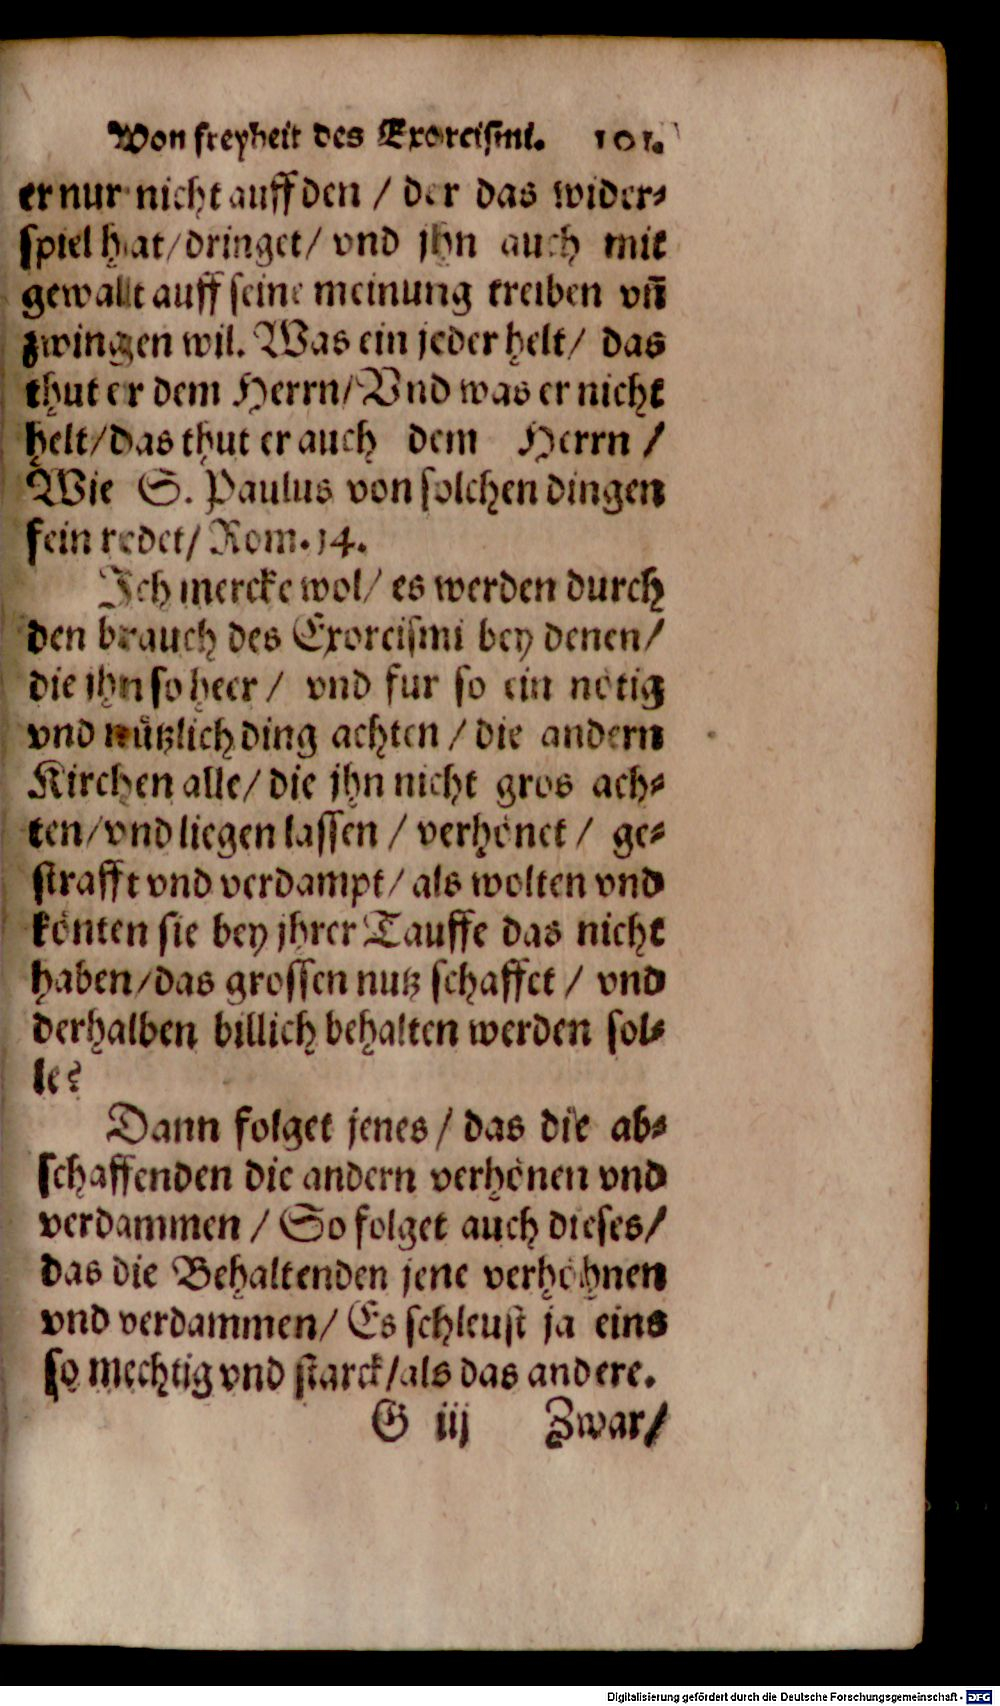 Von freyheit des Exorcismi. 101.
er nur nicht auff den / der das wider⸗
spiel hat / dringet / vnd jhn auch mit
gewalt auff seine meinung treiben vñ
zwingen wil. Was ein jeder helt / das
thut er dem Herrn / Vnd was er nicht
helt / das thut er auch dem Herrn /
Wie S. Paulus von solchen dingen
fein redet / Rom. 14.
Ich mercke wol / es werden durch
den brauch des Exorcismi bey denen /
die jhn so heer / vnd fur so ein nötig
vnd nützlich ding achten / die andern
Kirchen alle / die jhn nicht gros ach⸗
ten / vnd liegen lassen / verhönet / ge⸗
strafft vnd verdampt / als wolten vnd
könten sie bey jhrer Tauffe das nicht
haben / das grossen nutz schaffet / vnd
derhalben billich behalten werden sol⸗
le?
Dann folget jenes / das die ab⸗
schaffenden die andern verhönen vnd
verdammen / So folget auch dieses /
das die Behaltenden jene verhöhnen
vnd verdammen / Es schleust ja eins
so mechtig vnd starck / als das andere.
G iij Zwar /
Digitalisierung gefördert durch die Deutsche Forschungsgemeinschaft - DFG